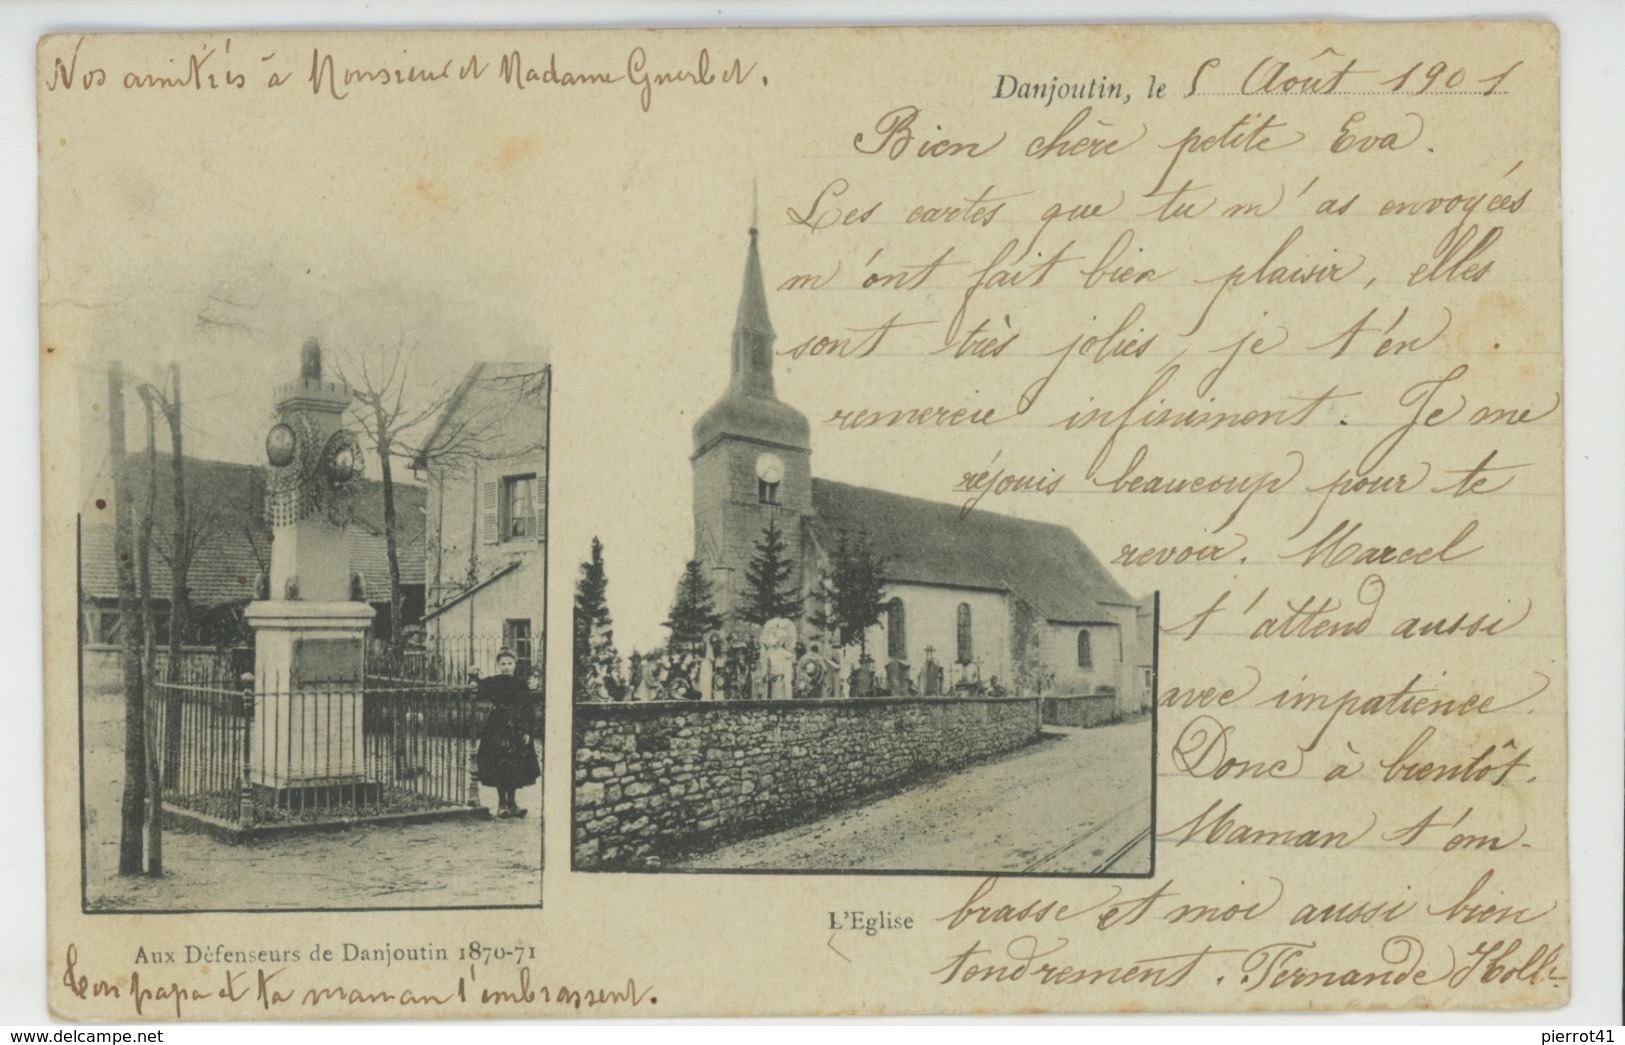 Nos amitiés à Monsieur et Madame Guerbet.
Danjoutin, le 5 Août 1901
Bien chère petite Eva.
Les cartes que tu m'as envoyées
m'ont fait bien plaisir, elles
sont très jolies, je t'en
remercie infiniment. Je me
réjouis beaucoup pour te
revoir. Marcel
t'attend aussi
avec impatience.
Donc à bientôt.
Maman t'em-
brasse et moi aussi bien
tendrement. Fernande
L'Eglise
Aux Défenseurs de Danjoutin 1870-71
Ton papa et ta maman t'embrassent.
© delcampe.net
pierrot41